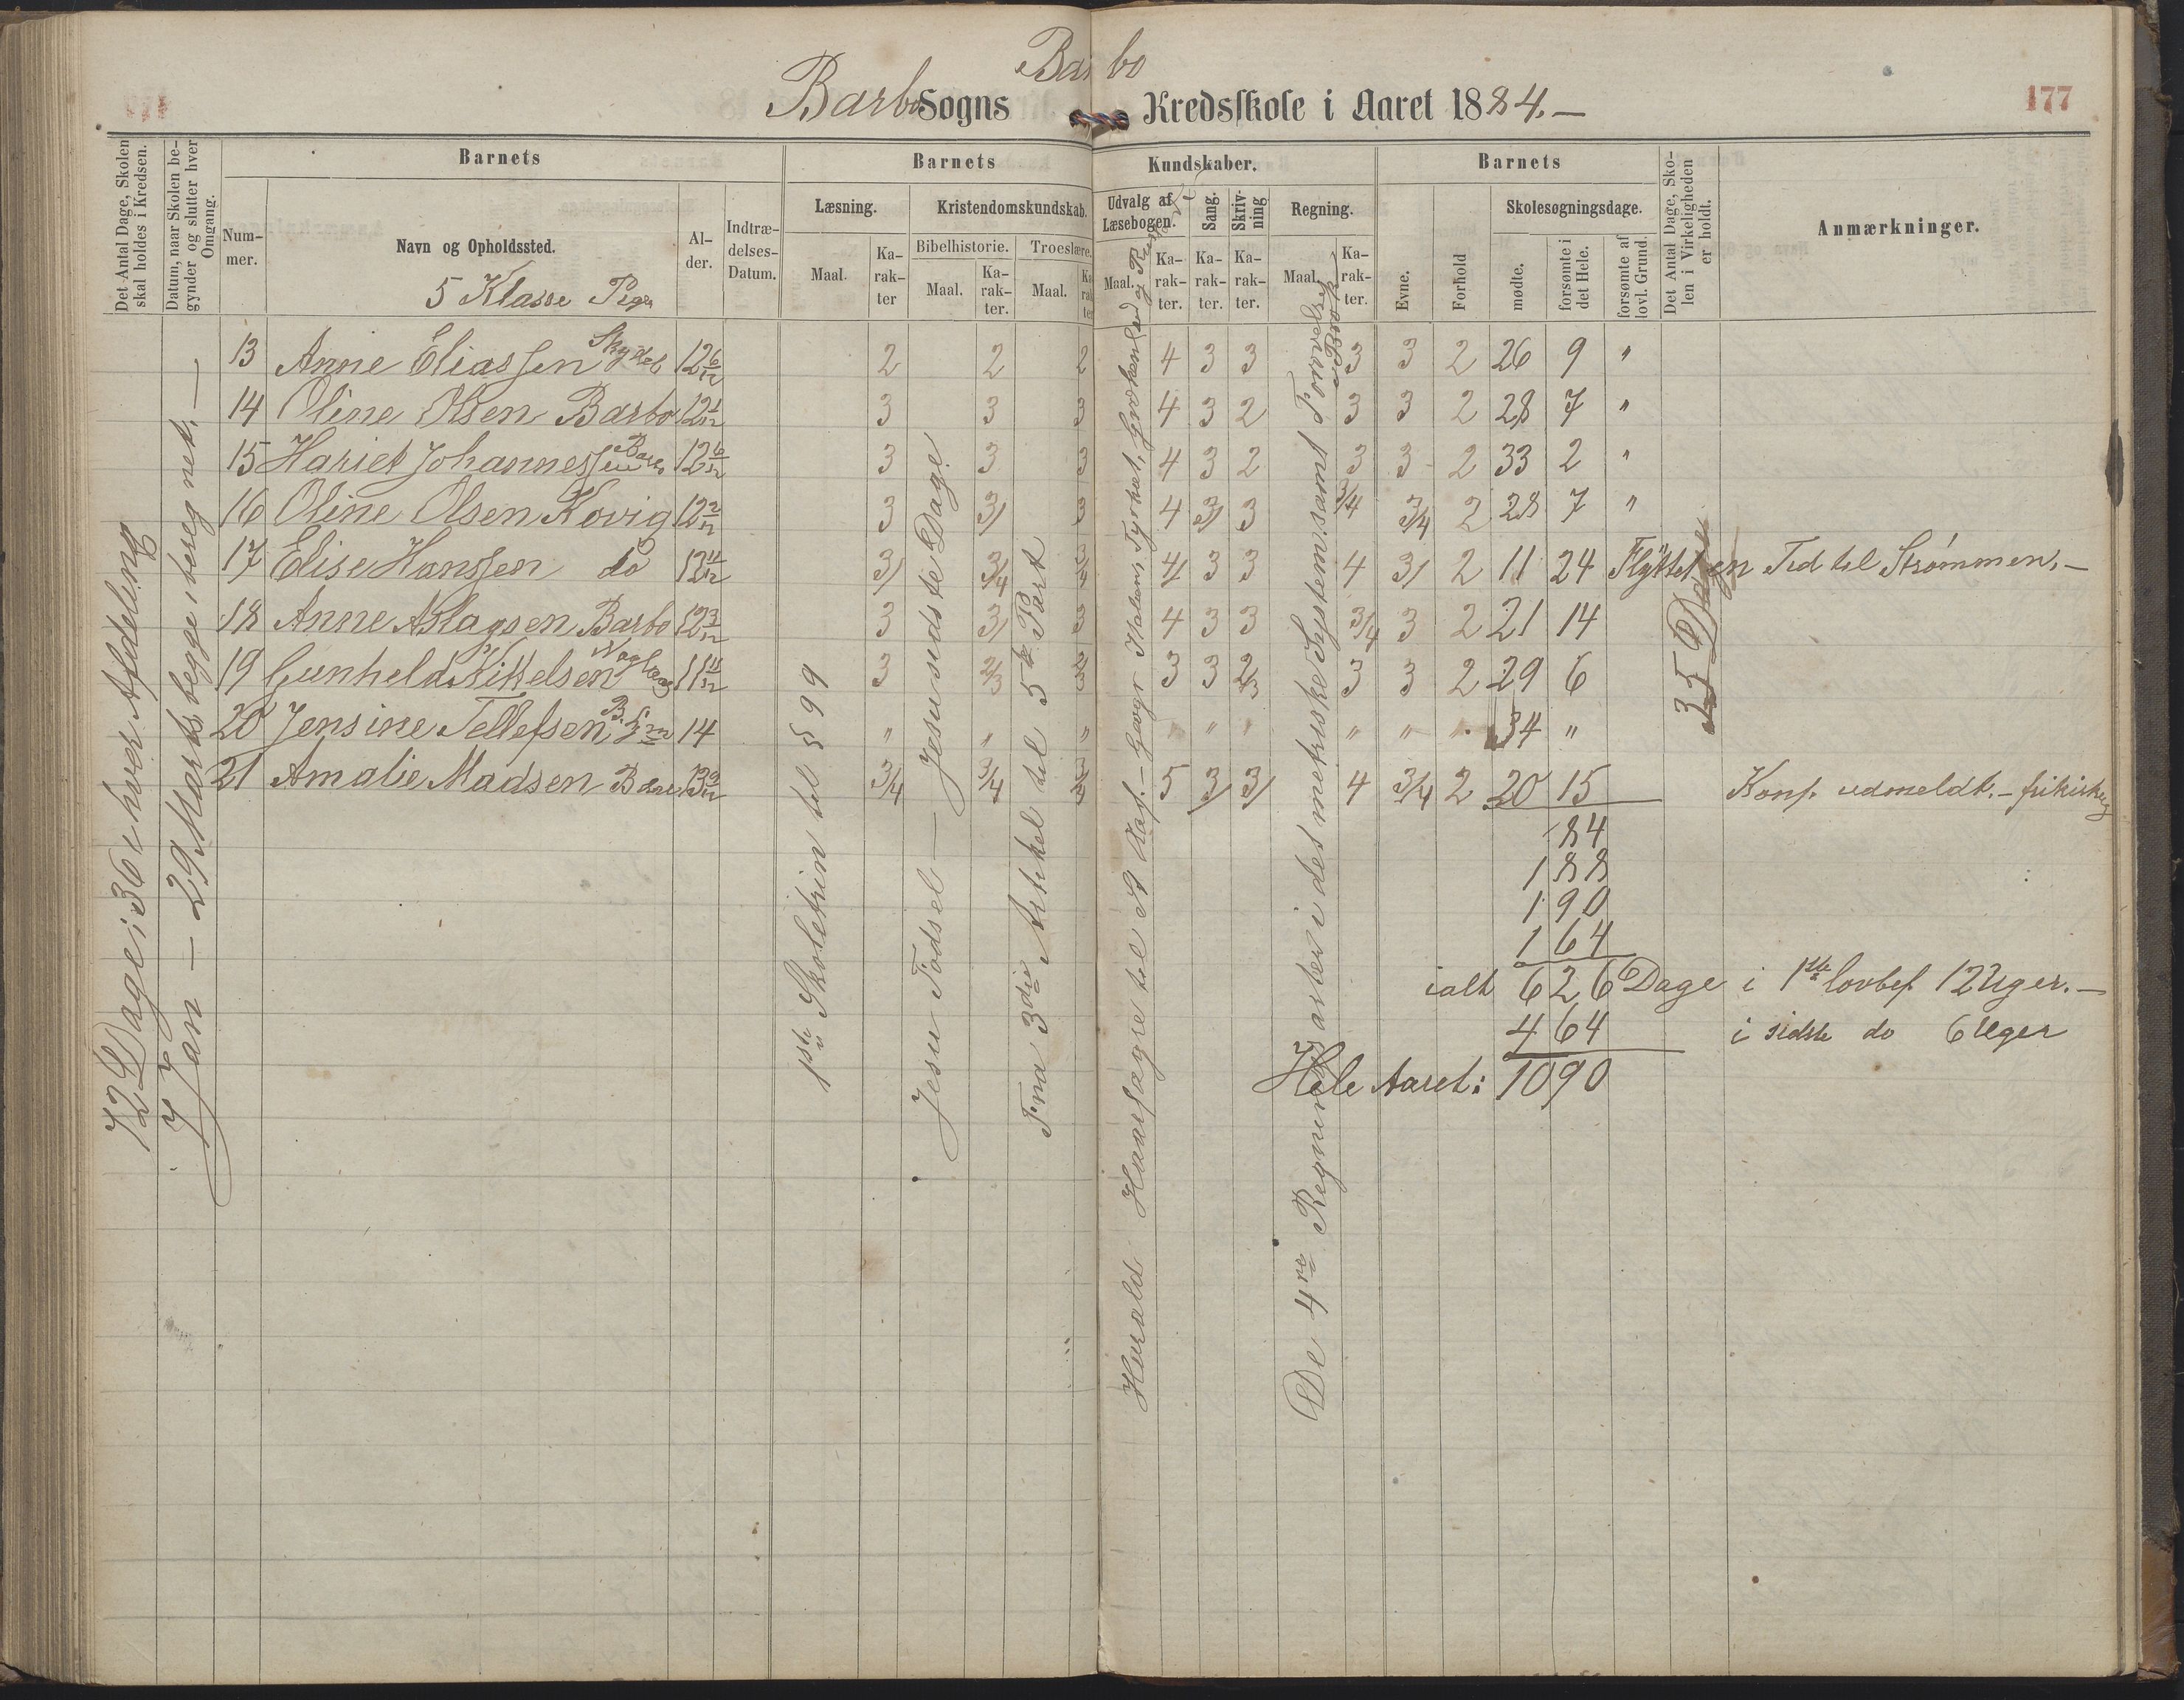 Barbo
Barbo Sogns Kredsskole i Aaret 1884.—
177
Det Antal Dage, Skolen skal holdes i Kredsen.
Datum, naar Skolen begynder og slutter hver Omgang.
Barnets
Nummer.
Navn og Opholdssted.
5 Klasse Piger
Alder.
Indtrædelses-Datum.
Barnets Kundskaber.
Læsning.
Maal.
Karakter
Kristendomskundskab.
Bibelhistorie.
Maal.
Karakter.
Troeslære.
Maal.
Karakter
Udvalg af Læsebogen.
Maal.
Karakter.
Sang.
Karakter.
Skrivning
Karakter.
Regning.
Maal.
Karakter.
Barnets
Evne.
Forhold
Skolesøgningsdage.
mødte.
forsømte i det Hele.
forsømte af lovl. Grund.
Det Antal Dage, Skolen i Virkeligheden er holdt.
Anmærkninger.
13 Anne Eliassen 12 6/12 2 2 2 4 3 3 3 3 2 26 9 "
14 Oline Olsen Barbo 12 1/12 3 3 3 4 3 2 3 3 2 28 7 "
15 Hariet Johannessen Barbo 12 6/12 3 3 3 4 3 2 3 3 2 33 2 "
16 Oline Olsen Kovig 12 2/12 3 3/ 3 4 3/ 3 3/4 3/4 2 28 7 "
17 Elise Hanssen do 12 11/12 3/ 3/4 3/4 4/ 3 3 4 3/ 2 11 24 Flyttet en Tid til Strømmen.—
18 Anne Aslagsen Barbo 12 3/12 3 3/ 3 4 3 3 3/4 3 2 21 14
19 Gunheld Kittelsen 11 11/12 3 2/3 3 3 3 2/3 3 3 2 29 6
20 Jensine Tellefsen 14 " " " " " " " " " 34 "
21 Amalie Madsen 13 9/12 3/4 3/4 3/4 5 3/ 3/ 4 3/4 2 20 15 Konf. udmeldt.—
84
188
190
164
ialt 626 Dage i 1ste lovbef. 12 Uger.—
464 i sidste do 6 Uger
Hele Aaret: 1090
72 Dage; 36 i hver Afdeling
7 Jan — 29 Marts begge iberegnet.—
1ste Skoletrin til § 99
Jesu Fødsel — Jesu sidste Dage
Fra 3die Artikel til 5te Part
Harald Haarfagre til St Olaf.— Geogr Italien, Tyrkiet, Grækenland og
De 4re Regningsarter i det metriske System samt
35 Dage